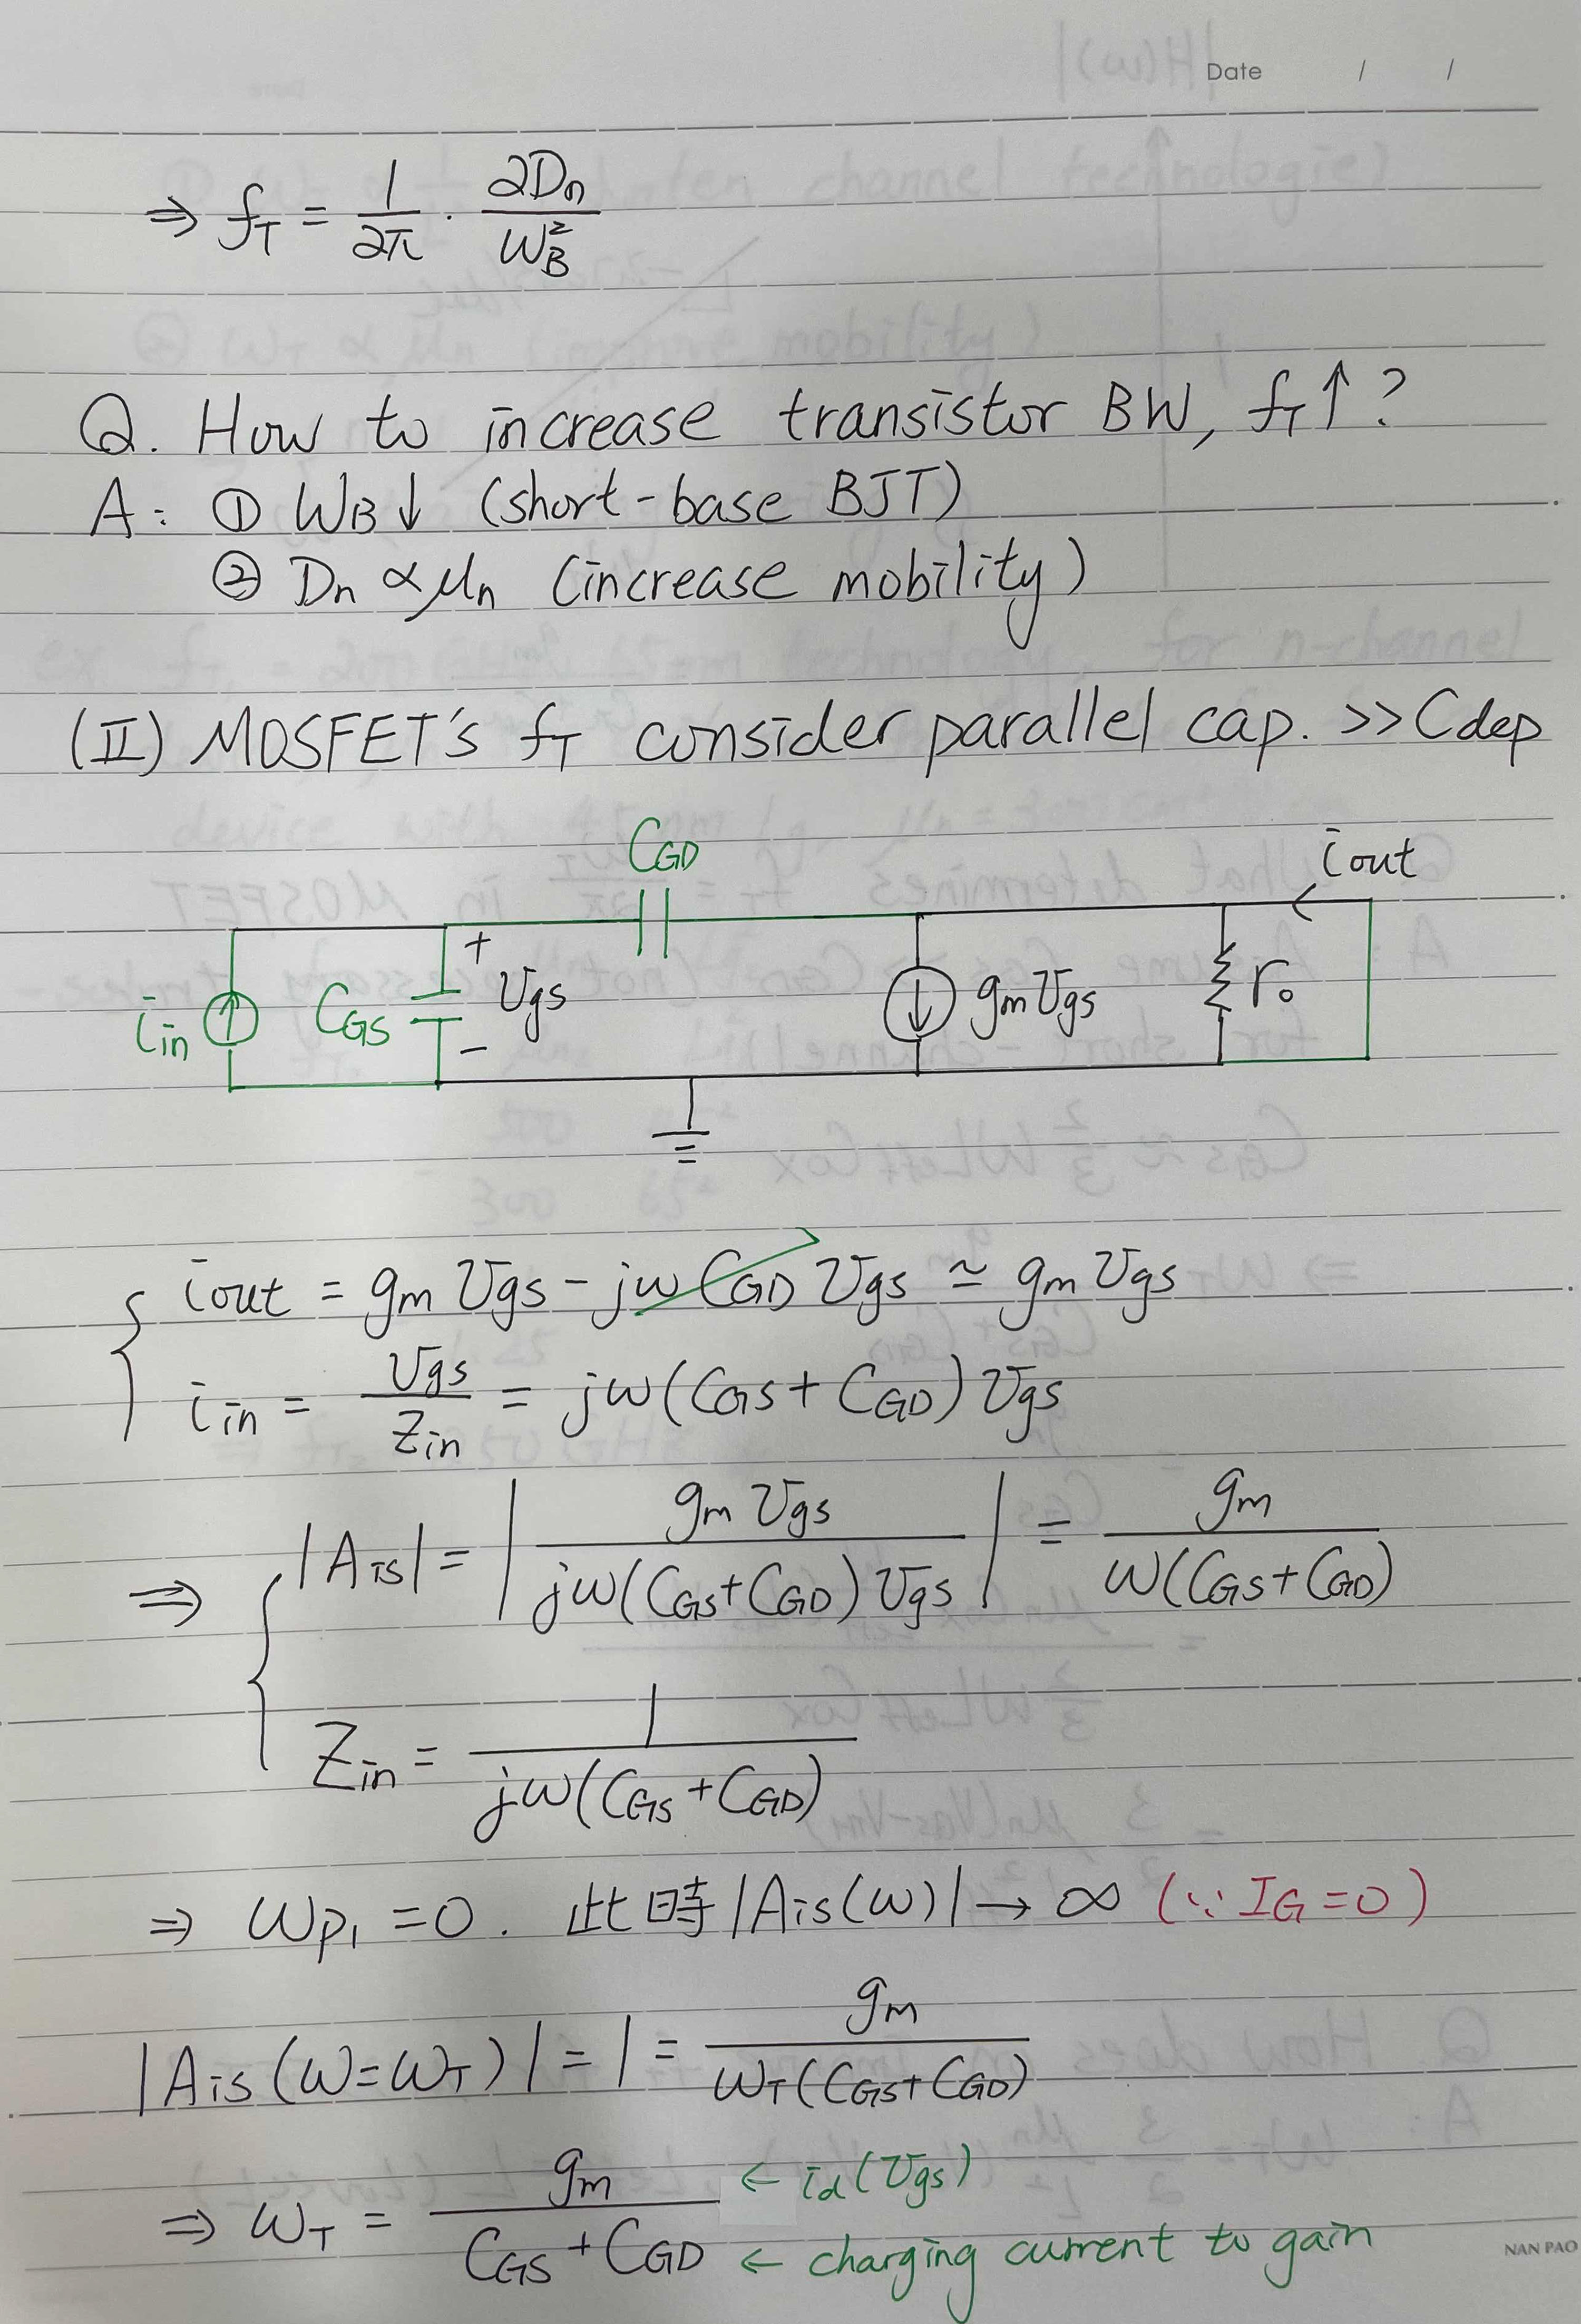 Date / /
⇒ fT = 1/2π · 2Dn/WB²
Q. How to increase transistor BW, fT↑?
A: ① WB↓ (short-base BJT)
② Dn ∝ μn (increase mobility)
(II) MOSFET's fT consider parallel cap. >> Cdep
CGD
iout
iin CGS + vgs − gmvgs ro
iout = gm vgs − jω CGD vgs ≃ gm vgs
iin = vgs/Zin = jω(CGS + CGD) vgs
⇒ |Ais| = | gm vgs / jω(CGS+CGD) vgs | = gm / ω(CGS+CGD)
Zin = 1 / jω(CGS+CGD)
⇒ ωp1 = 0. 此時 |Ais(ω)| → ∞ (∵ IG = 0)
|Ais(ω=ωT)| = 1 = gm / ωT(CGS+CGD)
⇒ ωT = gm / CGS+CGD ← id(vgs)
← charging current to gain
NAN PAO